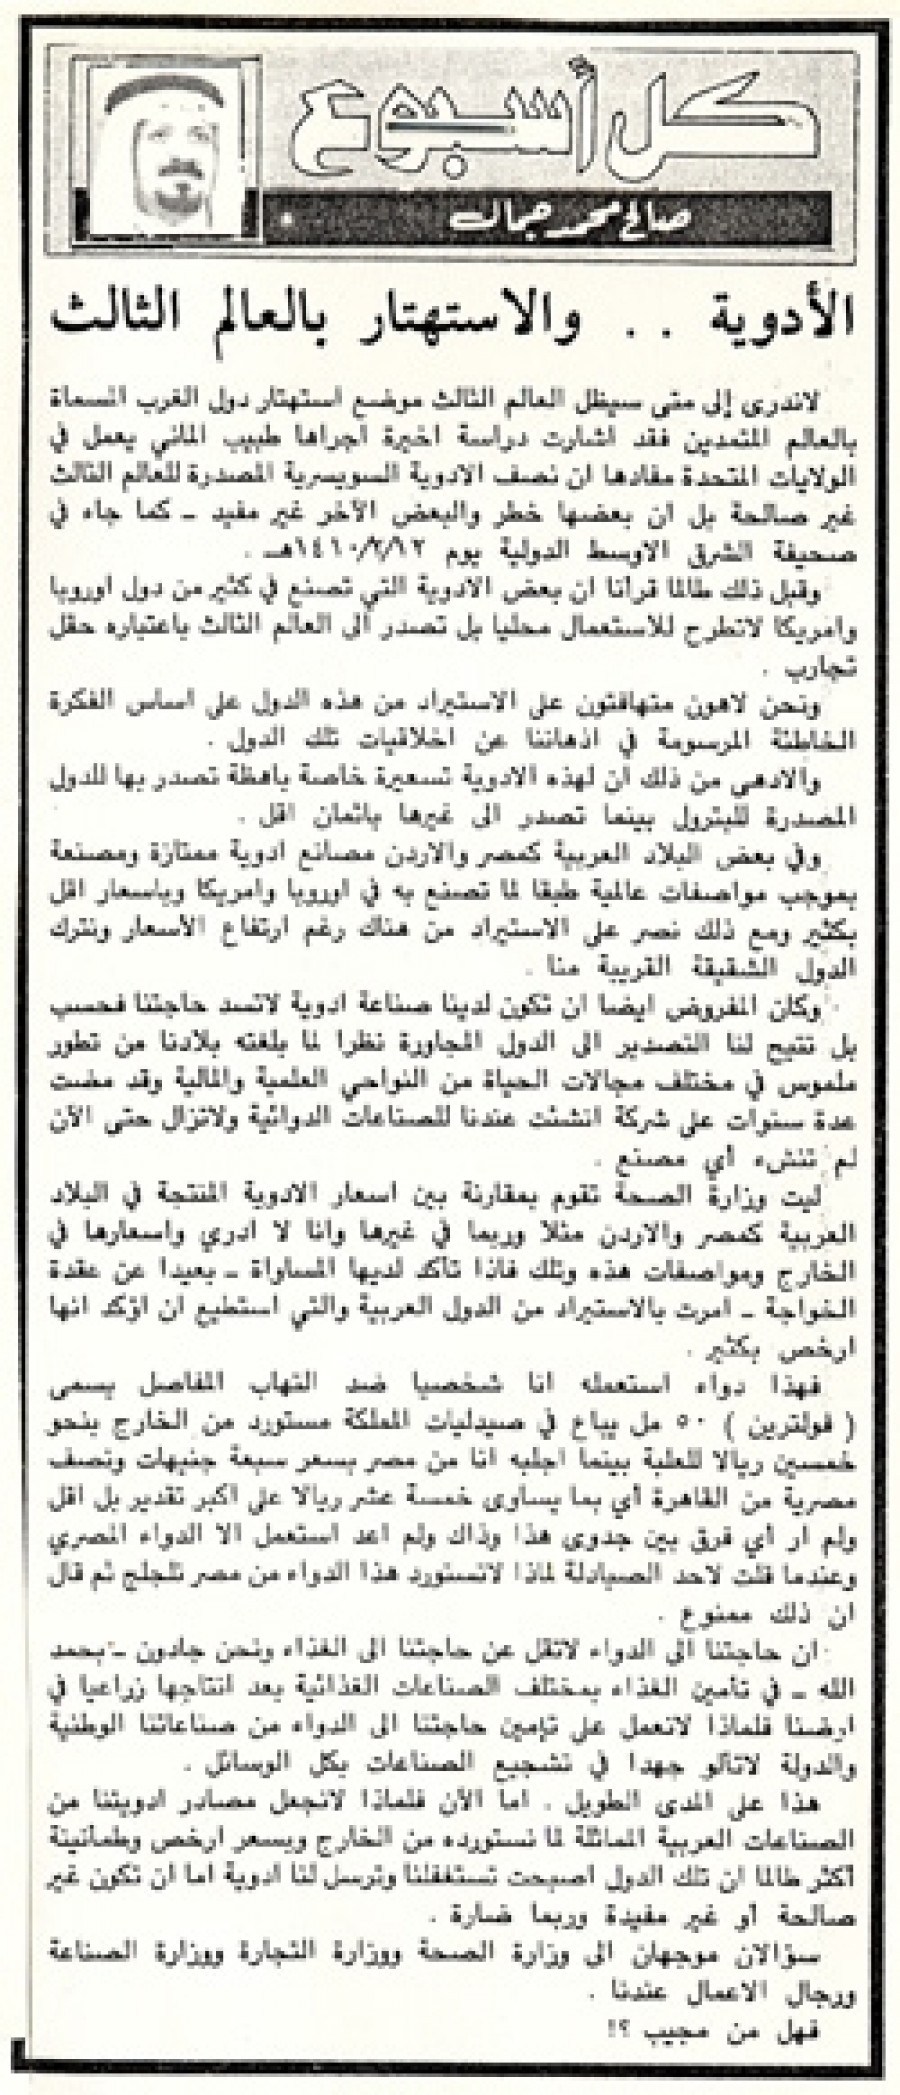 كل أسبوع
صالح محمد جمال
الأدوية .. والاستهتار بالعالم الثالث
لاندرى إلى متى سيظل العالم الثالث موضع استهتار دول الغرب المسماة
بالعالم المتمدين فقد اشارت دراسة اخيرة اجراها طبيب الماني يعمل في
الولايات المتحدة مفادها ان نصف الادوية السويسرية المصدرة للعالم الثالث
غير صالحة بل ان بعضها خطر والبعض الآخر غير مفيد ـ كما جاء في
صحيفة الشرق الاوسط الدولية يوم ١٤١٠/٢/١٢هـ .
وقبل ذلك طالما قرأنا ان بعض الادوية التي تصنع في كثير من دول اوروبا
وامريكا لاتطرح للاستعمال محليا بل تصدر الى العالم الثالث باعتباره حقل
تجارب .
ونحن لاهون متهافتون على الاستيراد من هذه الدول على اساس الفكرة
الخاطئة المرسومة في اذهاننا عن اخلاقيات تلك الدول .
والادهى من ذلك ان لهذه الادوية تسعيرة خاصة باهظة تصدر بها للدول
المصدرة للبترول بينما تصدر الى غيرها باثمان اقل .
وفي بعض البلاد العربية كمصر والاردن مصانع ادوية ممتازة ومصنعة
بموجب مواصفات عالمية طبقا لما تصنع به في اوروبا وامريكا وباسعار اقل
بكثير ومع ذلك نصر على الاستيراد من هناك رغم ارتفاع الأسعار ونترك
الدول الشقيقة القريبة منا .
وكان المفروض ايضا ان تكون لدينا صناعة ادوية لاتسد حاجتنا فحسب
بل تتيح لنا التصدير الى الدول المجاورة نظرا لما بلغته بلادنا من تطور
ملموس في مختلف مجالات الحياة من النواحي العلمية والمالية وقد مضت
عدة سنوات على شركة انشئت عندنا للصناعات الدوائية ولاتزال حتى الآن
لم تنشىء أي مصنع .
ليت وزارة الصحة تقوم بمقارنة بين اسعار الادوية المنتجة في البلاد
العربية كمصر والاردن مثلا وربما في غيرها وانا لا ادري واسعارها في
الخارج ومواصفات هذه وتلك فاذا تأكد لديها المساواة ـ بعيدا عن عقدة
الخواجة ـ امرت بالاستيراد من الدول العربية والتي استطيع ان اؤكد انها
ارخص بكثير .
فهذا دواء استعمله انا شخصيا ضد التهاب المفاصل يسمى
( فولترين ) ٥٠ مل يباع في صيدليات المملكة مستورد من الخارج بنحو
خمسين ريالا للعلبة بينما اجلبه انا من مصر بسعر سبعة جنيهات ونصف
مصرية من القاهرة أي بما يساوى خمسة عشر ريالا على اكبر تقدير بل اقل
ولم ار أي فرق بين جدوى هذا وذاك ولم اعد استعمل الا الدواء المصري
وعندما قلت لاحد الصيادلة لماذا لاتستورد هذا الدواء من مصر تلجلج ثم قال
ان ذلك ممنوع .
ان حاجتنا الى الدواء لاتقل عن حاجتنا الى الغذاء ونحن جادون ـ بحمد
الله ـ في تأمين الغذاء بمختلف الصناعات الغذائية بعد انتاجها زراعيا في
ارضنا فلماذا لانعمل على تؤمين حاجتنا الى الدواء من صناعاتنا الوطنية
والدولة لاتألو جهدا في تشجيع الصناعات بكل الوسائل .
هذا على المدى الطويل . اما الآن فلماذا لانجعل مصادر ادويتنا من
الصناعات العربية المماثلة لما نستورده من الخارج وبسعر ارخص وطمأنينة
أكثر طالما ان تلك الدول اصبحت تستغفلنا وترسل لنا ادوية اما ان تكون غير
صالحة أو غير مفيدة وربما ضارة .
سؤالان موجهان الى وزارة الصحة ووزارة التجارة ووزارة الصناعة
ورجال الاعمال عندنا .
فهل من مجيب ؟!